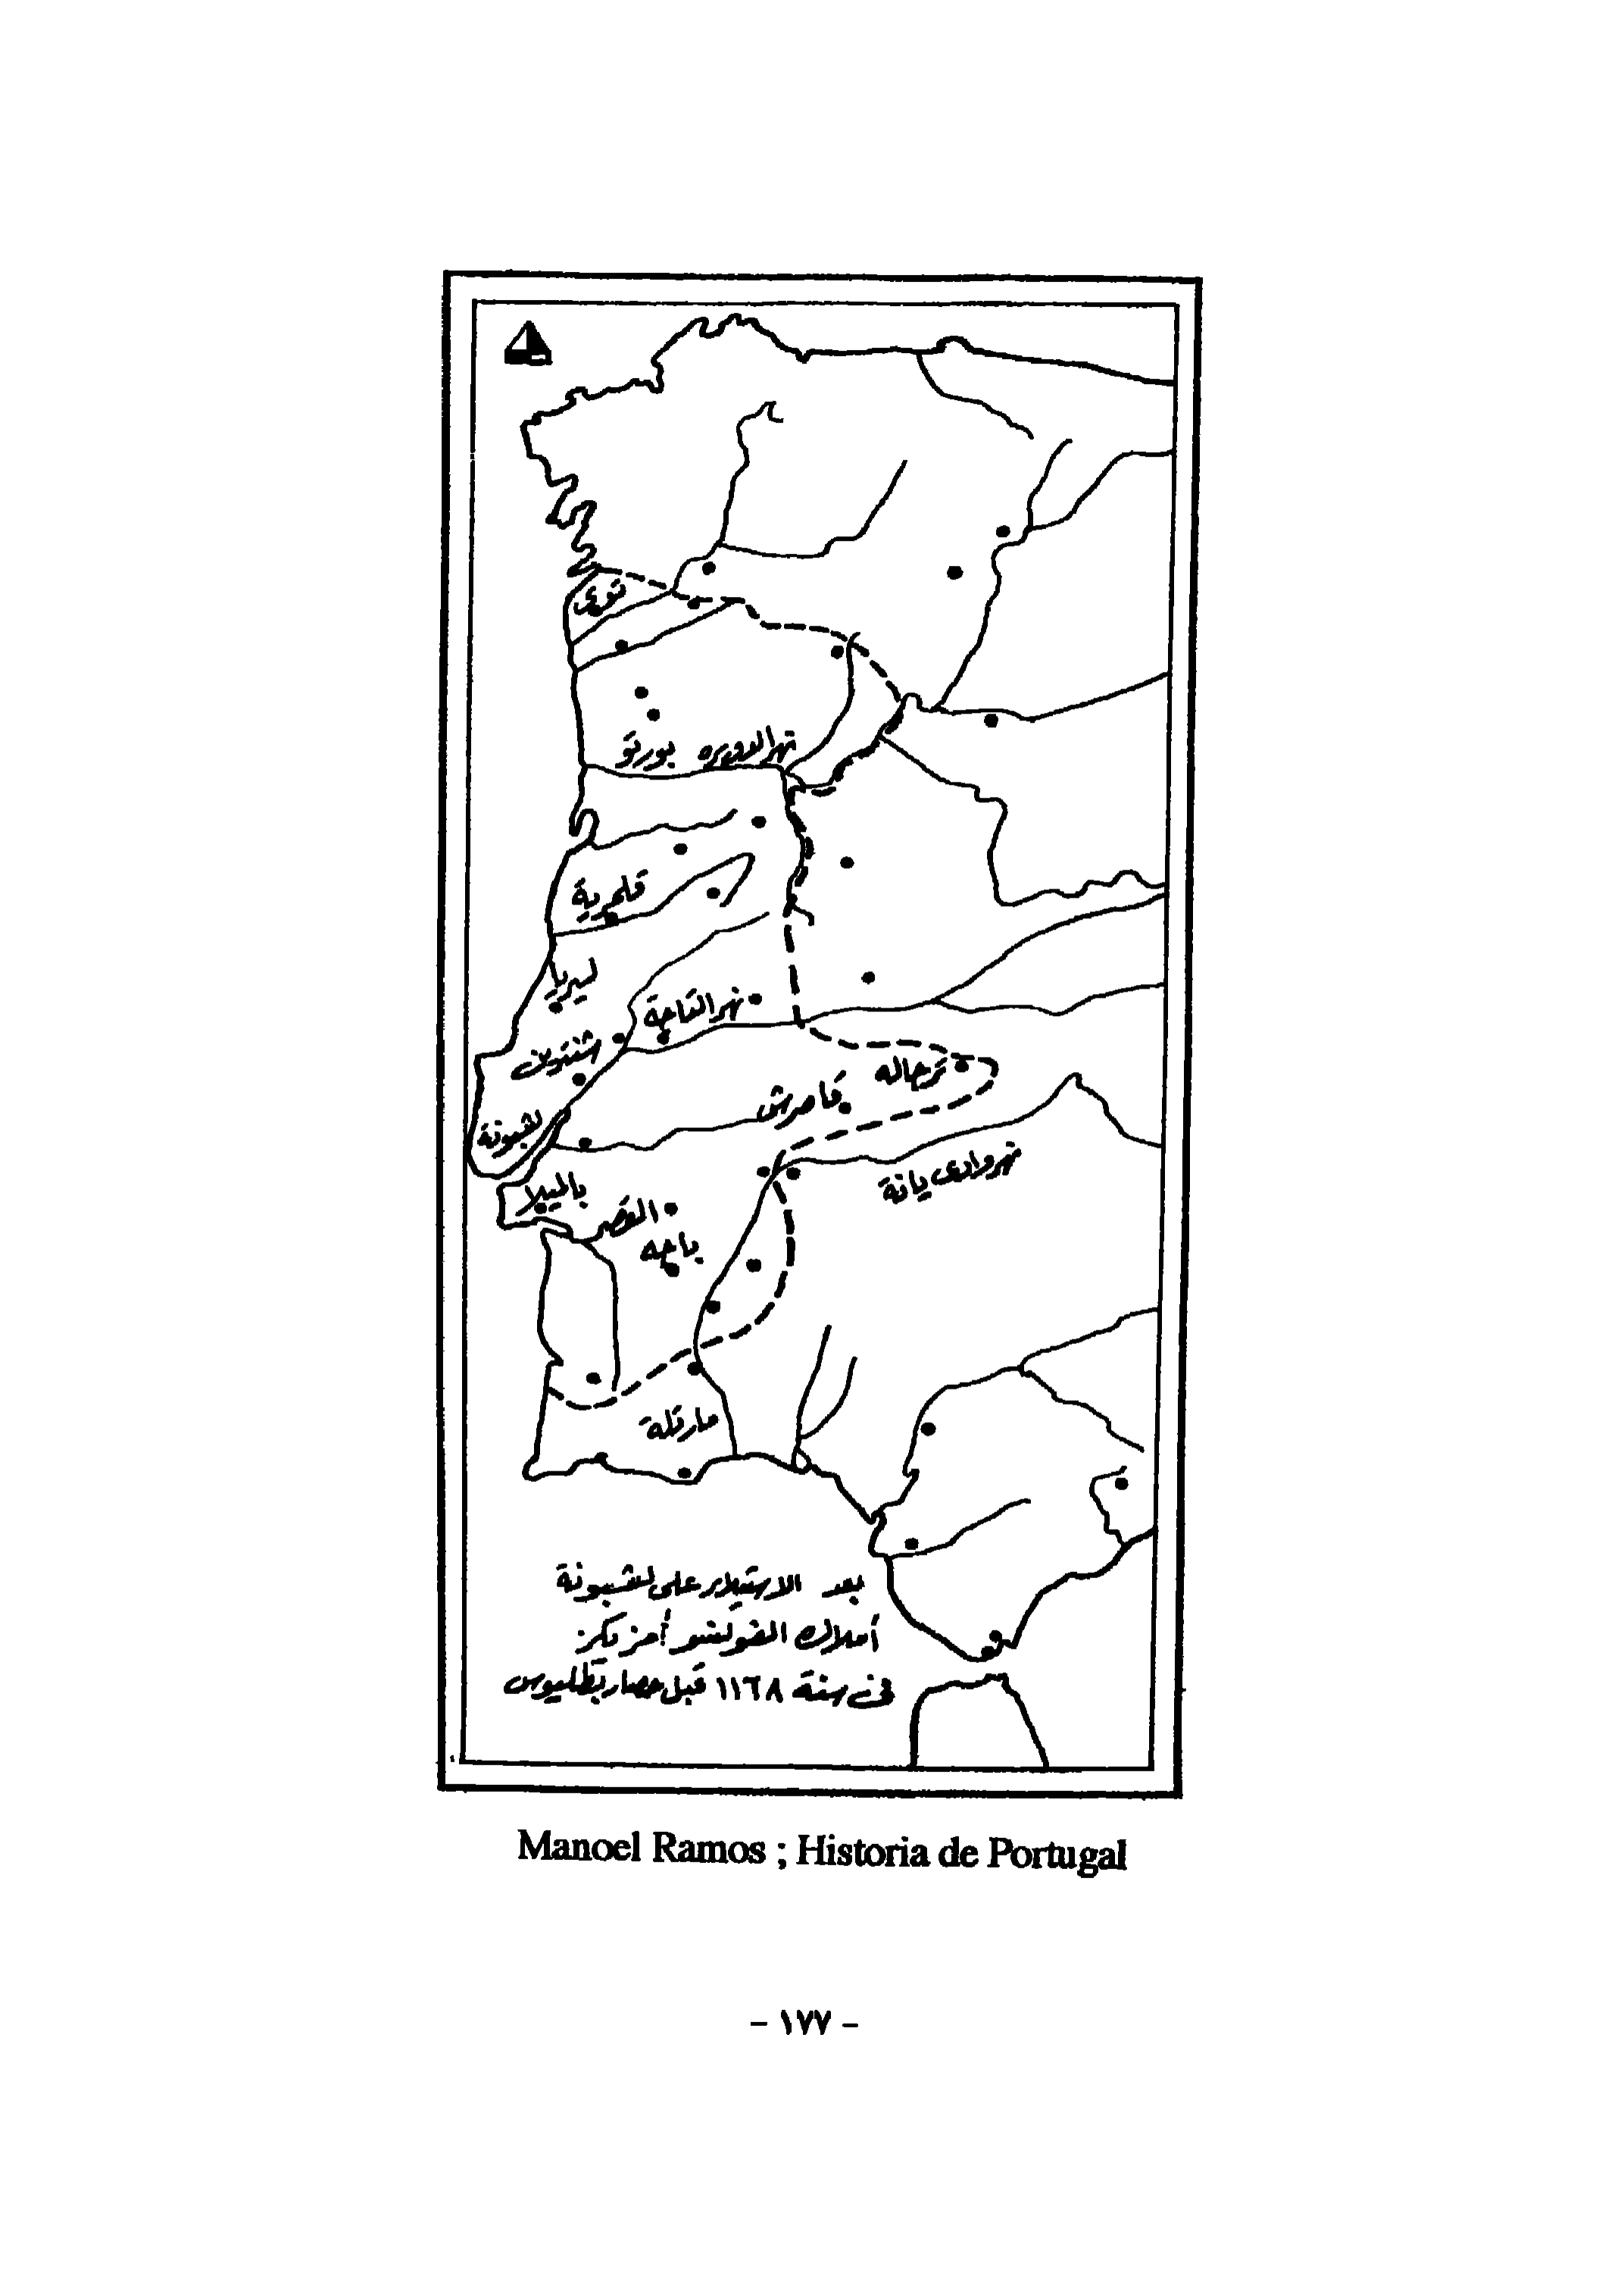 توى
نهر الدويره
بورتو
قلمرية
ليريا
نهر التاجة
شنترين
ترجاله
قاصرش
لشبونة
نهر وادى يانة
بالميلا
القصر
باجه
مارتلة
بعد الاستيلاء على لشبونة
أملاك الفونسو أنريكز
فى سنة ١١٦٨ قبل حصار بطليوس
Manoel Ramos ; Historia de Portugal
- ١٧٧ -